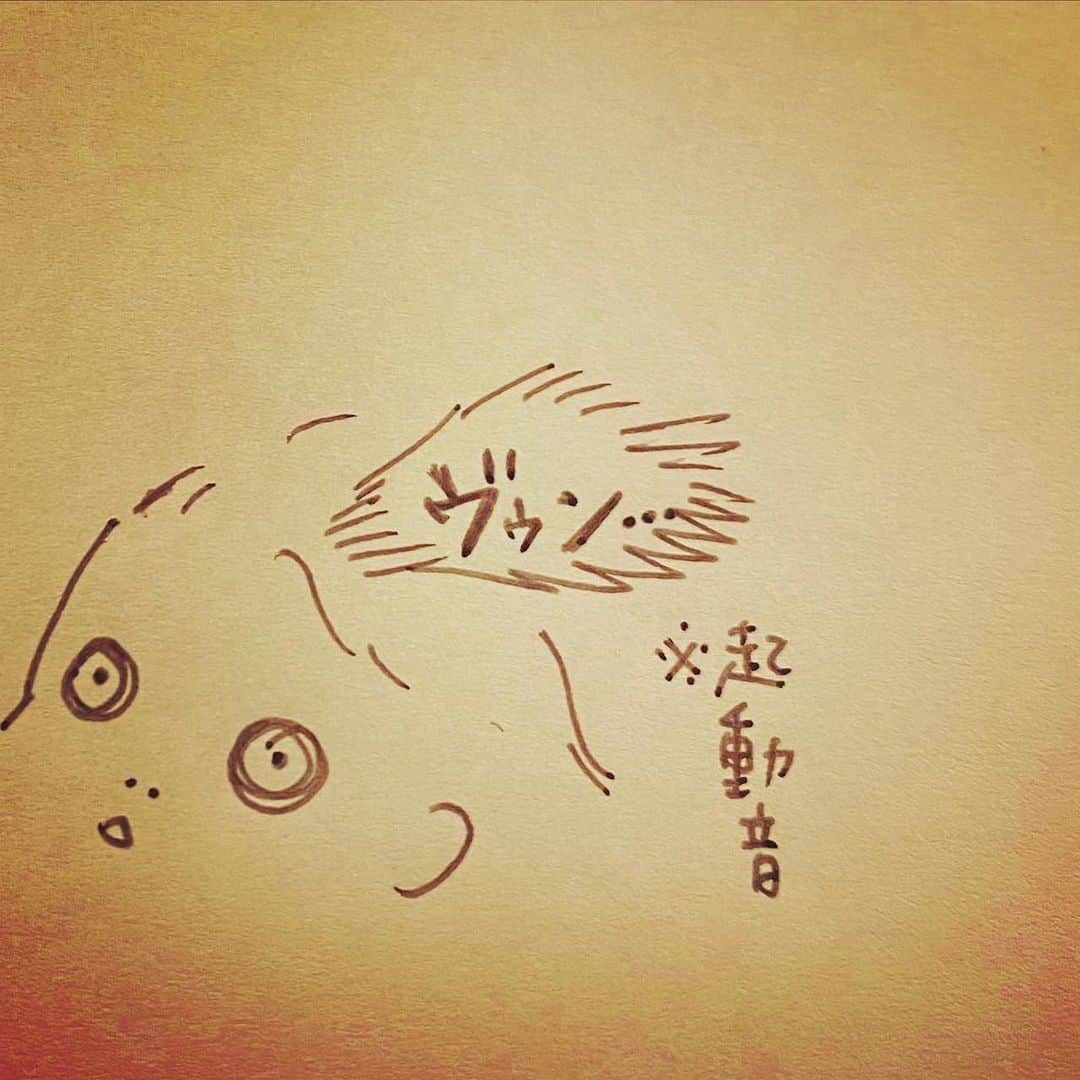 ヴゥン…
※起動音